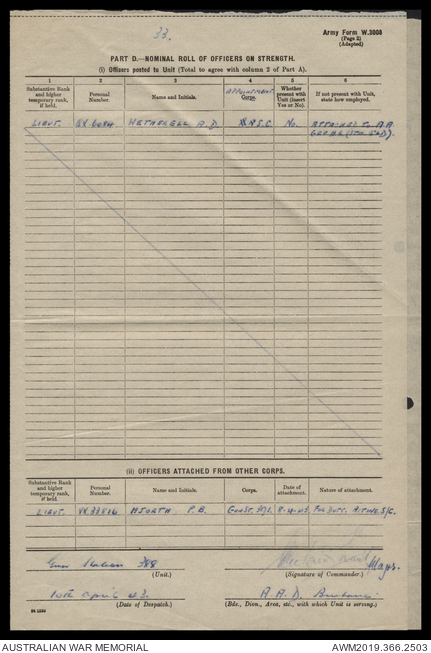 33.
Army Form W.3008
(Page 2)
(Adapted)
PART D.—NOMINAL ROLL OF OFFICERS ON STRENGTH.
(i) Officers posted to Unit (Total to agree with column 2 of Part A).
1 2 3 4 5 6
Substantive Rank and higher temporary rank, if held. Personal Number. Name and Initials. APPOINTMENT Corps. Whether present with Unit (Insert Yes or No). If not present with Unit, state how employed.
LIEUT. HETHERELL A.D. No. ATTACHED A.A.
(ii) OFFICERS ATTACHED FROM OTHER CORPS.
Substantive Rank and higher temporary rank, if held. Personal Number. Name and Initials. Corps. Date of attachment. Nature of attachment.
LIEUT. HJORTH P.B. FOR DUTY.
Gun Station 388
(Unit.) (Signature of Commander.)
Major.
10th April 43. A.A.D. Brisbane
(Date of Despatch.) (Bde., Divn., Area, etc., with which Unit is serving.)
AUSTRALIAN WAR MEMORIAL AWM2019.366.2503